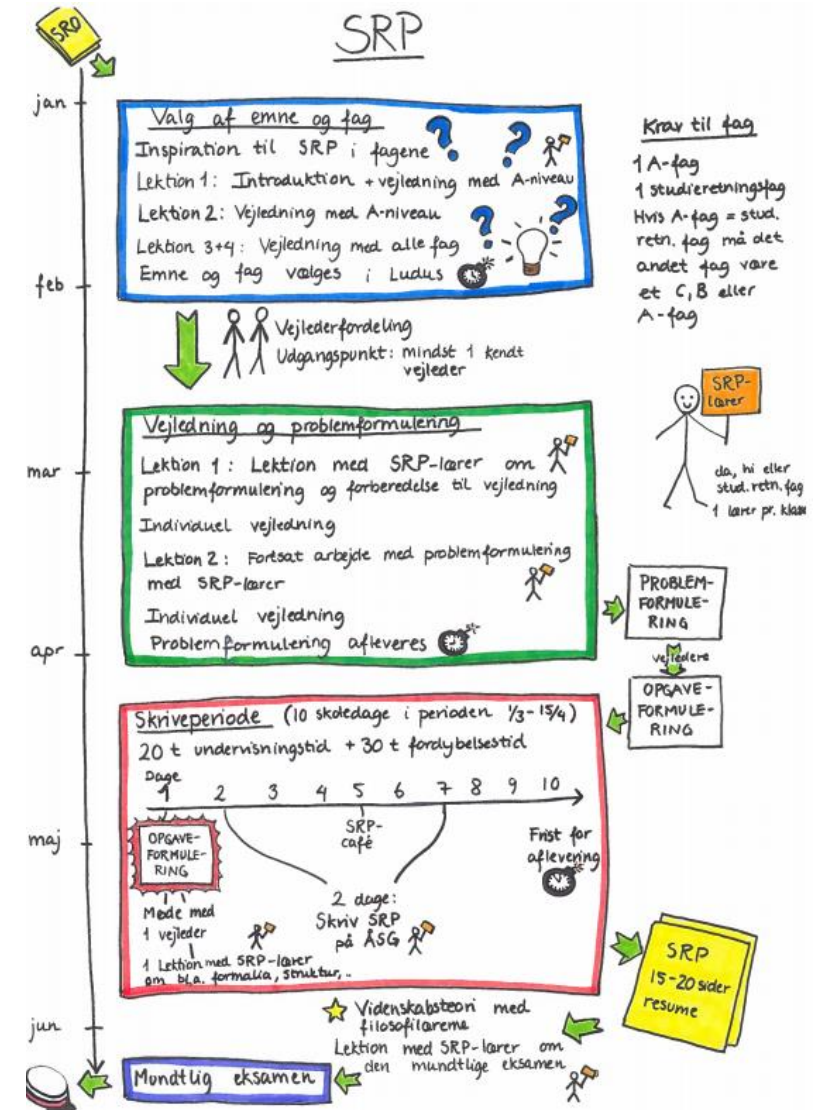 SRO
SRP
jan
Valg af emne og fag
Inspiration til SRP i fagene
Lektion 1: Introduktion + vejledning med A-niveau
Lektion 2: Vejledning med A-niveau
Lektion 3+4: Vejledning med alle fag
Emne og fag vælges i Ludus
Krav til fag
1 A-fag
1 studieretningsfag
Hvis A-fag = stud.
retn. fag må det
andet fag være
et C, B eller
A-fag
feb
Vejlederfordeling
Udgangspunkt: mindst 1 kendt
vejleder
SRP-
lærer
da, hi eller
stud. retn. fag
1 lærer pr. klasse
Vejledning og problemformulering
mar
Lektion 1: Lektion med SRP-lærer om
problemformulering og forberedelse til vejledning
Individuel vejledning
Lektion 2: Fortsat arbejde med problemformulering
med SRP-lærer
Individuel vejledning
Problemformulering afleveres
PROBLEM-
FORMULE-
RING
vejledere
OPGAVE-
FORMULE-
RING
apr
Skriveperiode (10 skoledage i perioden 1/3-15/4)
20 t undervisningstid + 30 t fordybelsestid
Dage
1 2 3 4 5 6 7 8 9 10
maj
OPGAVE-
FORMULE-
RING
SRP-
café
Frist for
aflevering
Møde med
1 vejleder
2 dage:
Skriv SRP
på ÅSG
1 Lektion med SRP-lærer
om bl.a. formalia, struktur,..
SRP
15-20 sider
resume
jun
Videnskabsteori med
filosofilærerne
Lektion med SRP-lærer om
den mundtlige eksamen
Mundtlig eksamen